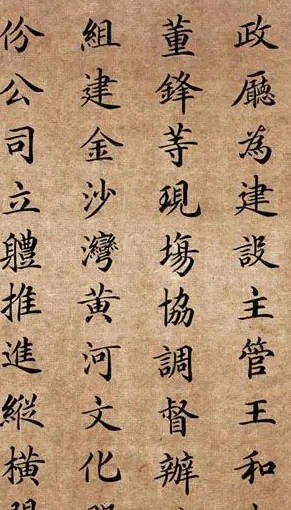 政廳為建設主管王和
董鋒等現場協調督辦
組建金沙灣黃河文化
份公司立體推進縱橫